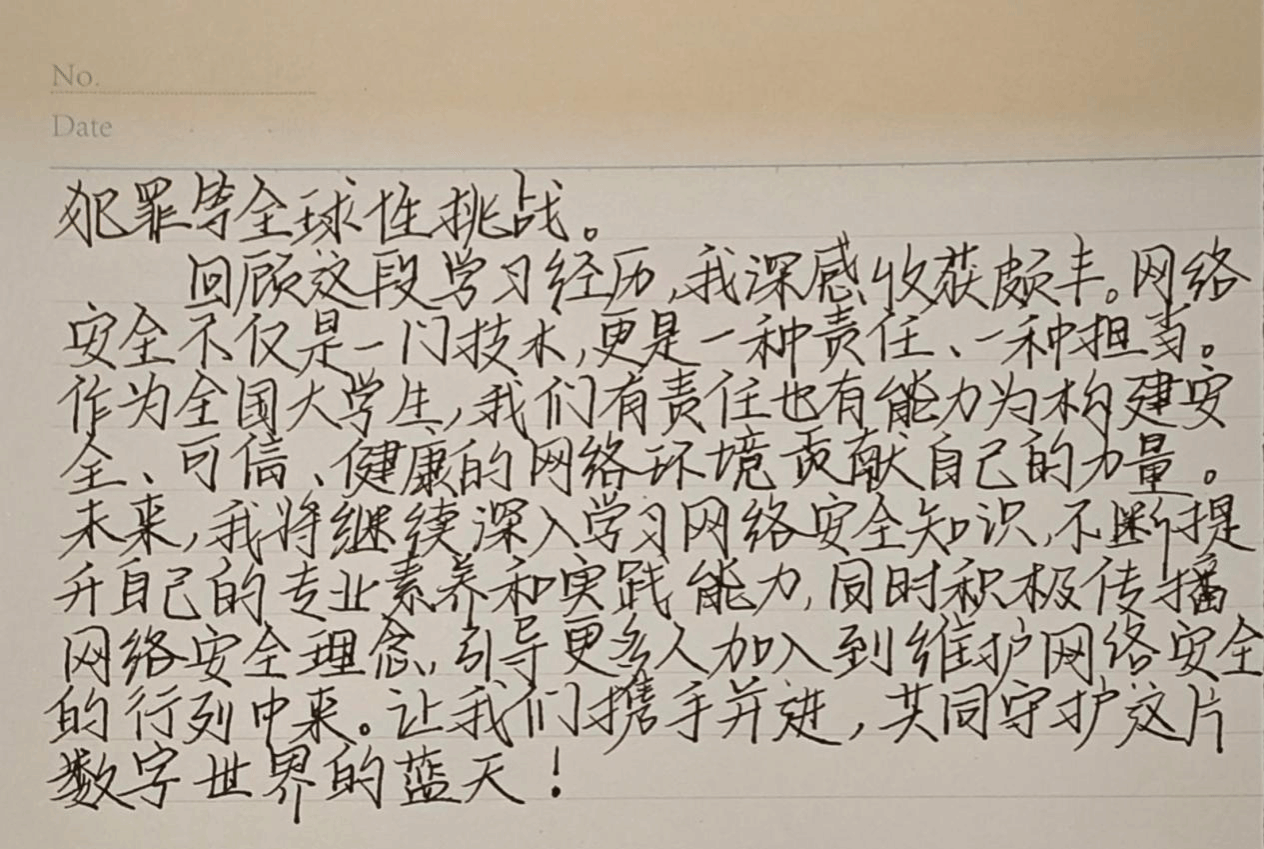 No.
Date
犯罪等全球性挑战。
回顾这段学习经历,我深感收获颇丰。网络
安全不仅是一门技术,更是一种责任、一种担当。
作为全国大学生,我们有责任也有能力为构建安
全、可信、健康的网络环境贡献自己的力量。
未来,我将继续深入学习网络安全知识,不断提
升自己的专业素养和实践能力,同时积极传播
网络安全理念,引导更多人加入到维护网络安全
的行列中来。让我们携手并进,共同守护这片
数字世界的蓝天!